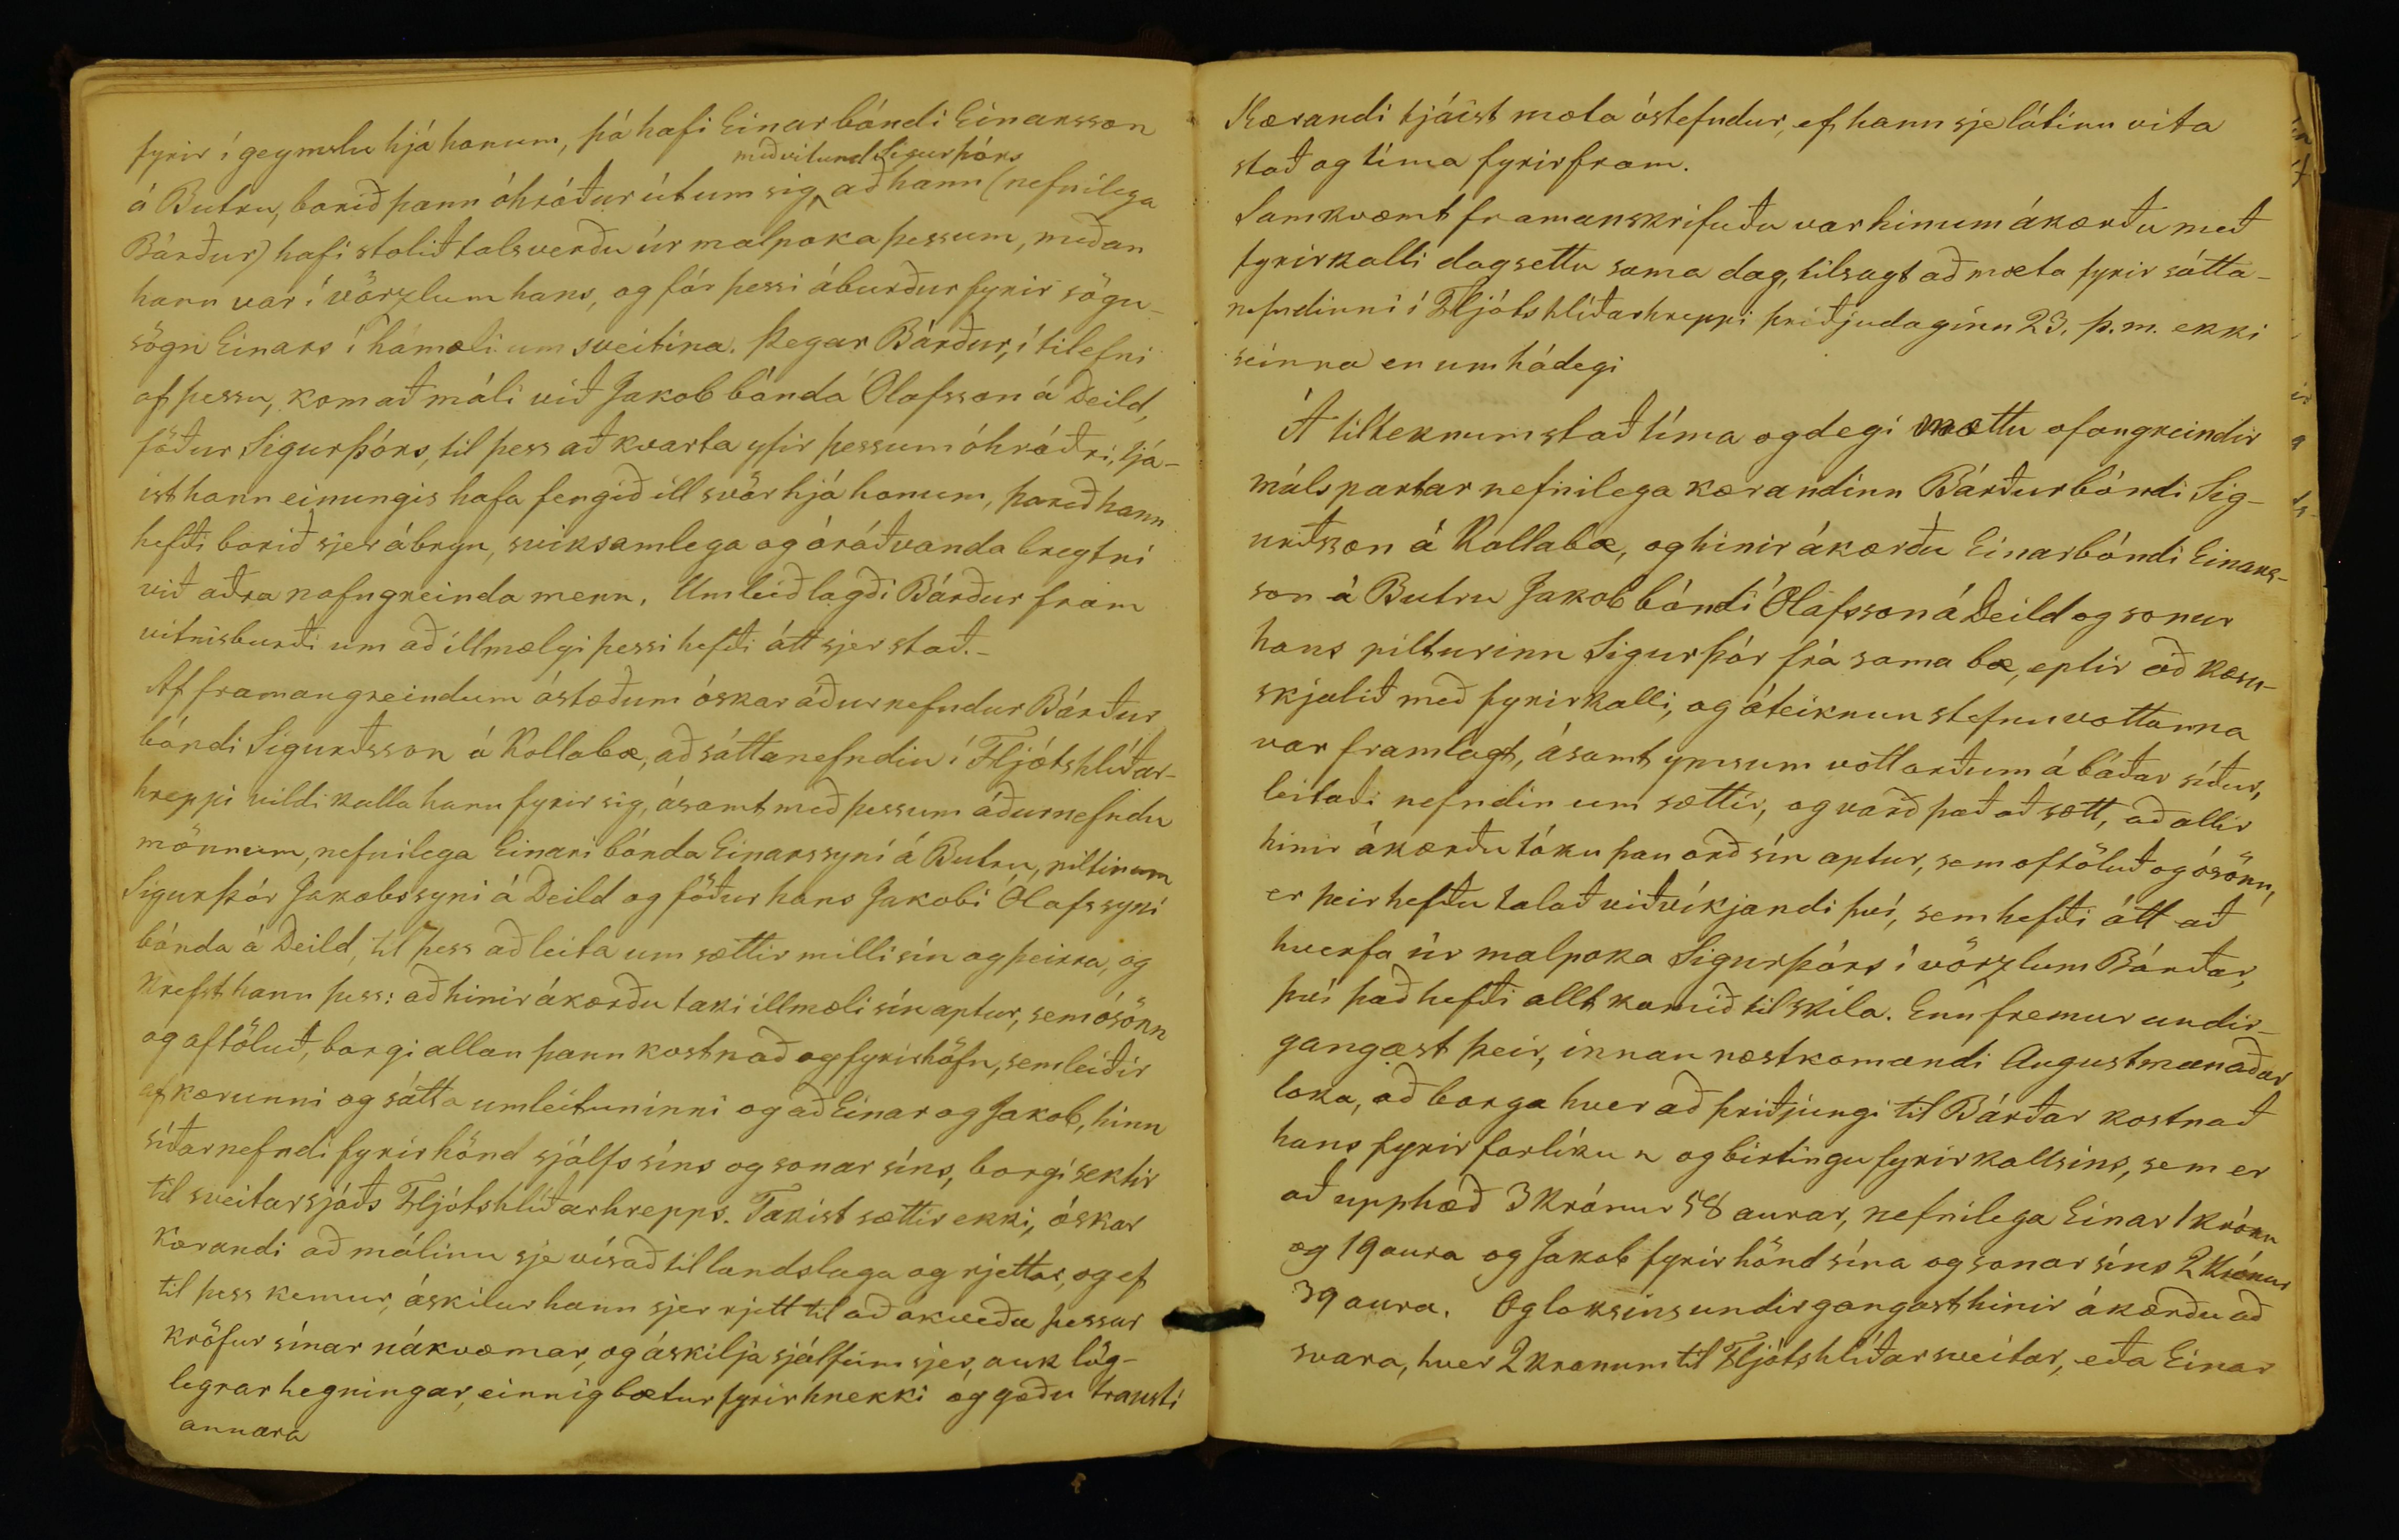 fyrir í geymslu hjá honum, þá hafi Einar bóndi Einarsson
með vitund Sigurþórs
á Butru, borið þann óhróður út um sig, að hann (nefnilega
Bárður) hafi stolið talsverðu úr malpoka þessum, meðan
hann var í vörzlum hans, og fór þessi áburður fyrir sögu-
sögn Einars í hámæli um sveitina. Þegar Bárður, í tilefni
af þessu, kom að máli við Jakob bónda Ólafsson á Deild,
föður Sigurþórs, til þess að kvarta yfir þessum óhróðri, tjá-
ist hann einungis hafa fengið ill svör hjá honum, þareð hann
hefði borið sjer á brýn, sviksamlega og óráðvanda breytni
við aðra nafngreinda menn. Um leið lagði Bárður fram
vitnisburði um að illmælgi þessi hefði átt sjer stað.-
Af framangreindum ástæðum óskar áðurnefndur Bárður
bóndi Sigurðsson á Kollabæ, að sáttanefndin í Fljótshlíðar-
hreppi vildi kalla hann fyrir sig, ásamt með þessum áðurnefndu
mönnum, nefnilega Einari bónda Einarssyni á Butru, piltinum
Sigurþór Jakobssyni á Deild og föður hans Jakobi Ólafssyni
bónda á Deild, til þess að leita um sættir milli sín og þeirra, og
krefst hann þess: að hinir ákærðu taki illmæli sín aptur, sem ósönn
og oftöluð, borgi allan þann kostnað og fyrirhöfn, sem leiðir
af kærunni og sátta umleituninni og að Einar og Jakob, hinn
síðarnefndi fyrir hönd sjálfs síns og sonar síns, borgi sektir
til sveitarsjóðs Fljótshlíðarhrepps. Takist sættir ekki, óskar
kærandi að málinu sje vísað til landslaga og rjettar, og ef
til þess kemur, áskilur hann sjer rjett til að ákveða þessar
kröfur sínar nákvæmar, og áskilja sjálfum sjer, auk lög-
legrar hegningar, einnig bætur fyrir hnekki og góðu trausti
annara
Kærandi tjáist mæta óstefndur, ef hann sje látinn vita
stað og tíma fyrirfram.
Samkvæmt framanskrifuðu var hinum ákærðu með
fyrirkalli dagsettu sama dag, tilsagt að mæta fyrir sátta-
nefndinni í Fljótshlíðarhreppi þriðjudaginn 23. þ.m. ekki
seinna en um hádegi
Á tilteknum stað tíma og degi mættu ofangreindir
málspartar nefnilega kærandinn Bárður bóndi Sig-
urðsson á Kollabæ, og hinir ákærðu Einar bóndi Einars-
son á Butru Jakob bóndi Ólafsson á Deild og sonur
hans pilturinn Sigurþór frá sama bæ, eptir að kæru-
skjalið með fyrirkalli, og áteiknun stefnuvottanna
var framlagt, ásamt ymsum vottorðum á báðar síður,
leitaði nefndin um sættir, og varð það að sætt, að allir
hinir ákærðu tóku þau orð sín aptur, sem oftöluð og ósönn,
er þeir hefðu talað viðvíkjandi því, sem hefði átt að
hverfa úr malpoka Sigurþórs í vörzlum Bárðar,
því það hefði allt komið til skila. Enn fremur undir-
gangast þeir, innan næstkomandi Augustmánaðar
loka, að borga hver að þriðjungi til Bárðar kostnað
hans fyrir forlíkun og birtingu fyrirkallsins, sem er
að upphæð 3 Krónur 58 aurar, nefnilega Einar 1 krónu
og 19 aura og Jakob fyrir hönd sína og sonar síns 2 Krónur
39 aura. Og loksins undirgangast hinir ákærðu að
svara, hver 2 kronum til Fljótshlíðarsveitar, eða Einar